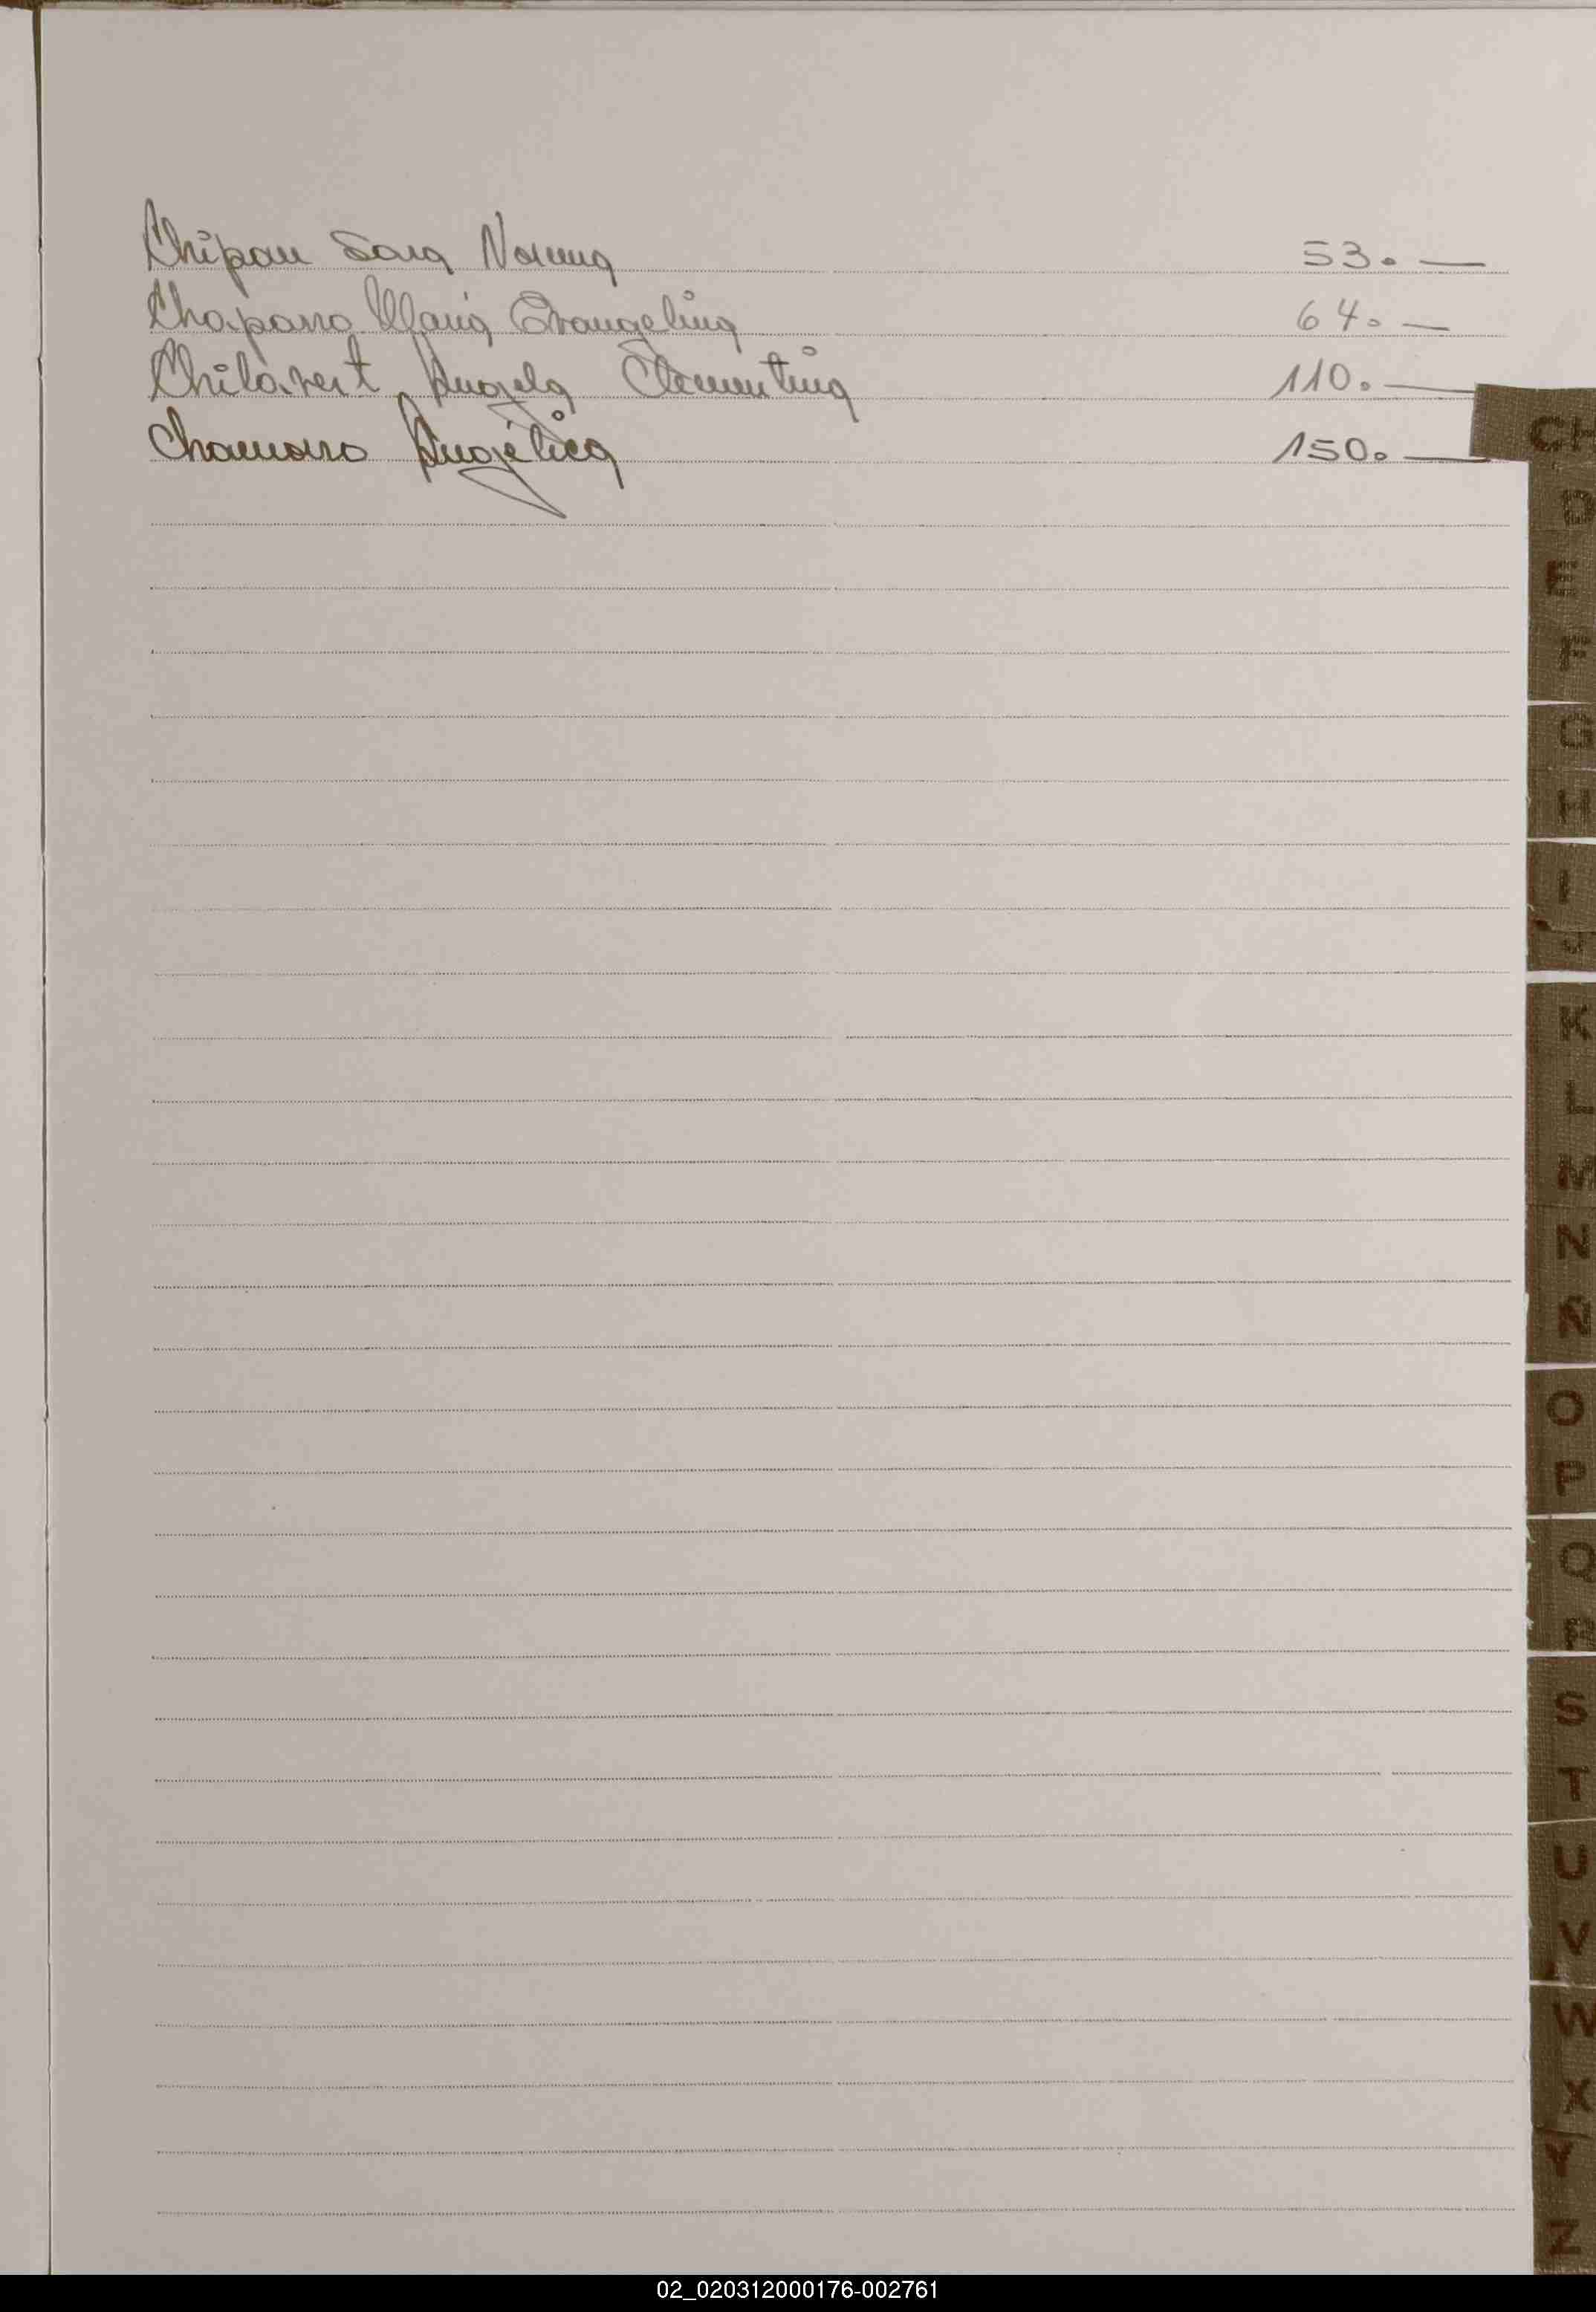 Chipau Sara Norma 53. —
Chaparro Maria Evangelina 64. —
Chilavert Angela Clementina 110. —
Chamorro Angélica 150. —
CH
D
E
F
G
H
I
J
K
L
M
N
Ñ
O
P
Q
R
S
T
U
V
W
X
Y
Z
02_020312000176-002761